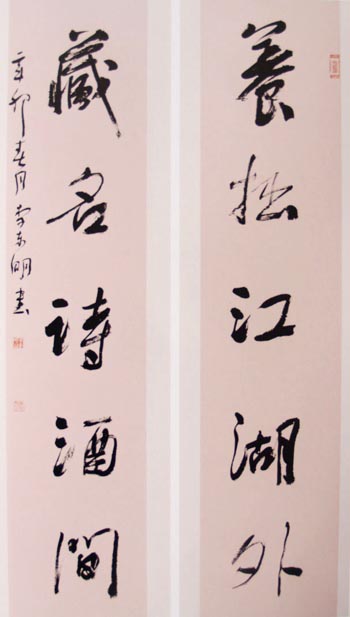 養拙江湖外
藏名诗酒間
辛卯春月 东明書